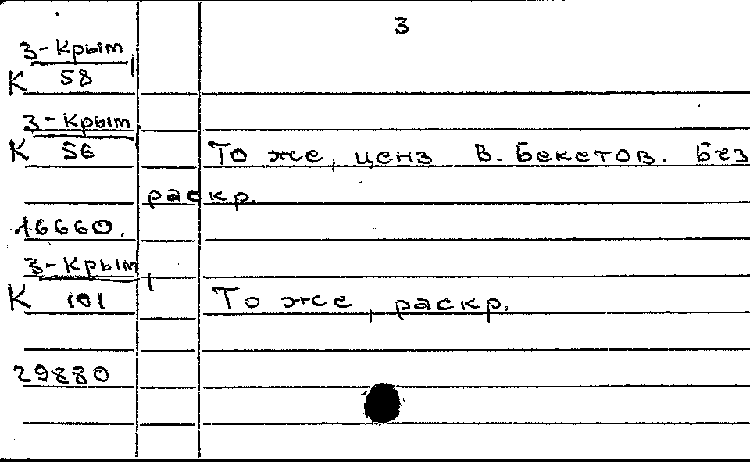 3
3-Крым
К 58
3-Крым
К 56 То же, ценз В. Бекетов. Без
раскр.
16660.
3-Крым
К 101 То же, раскр.
29880